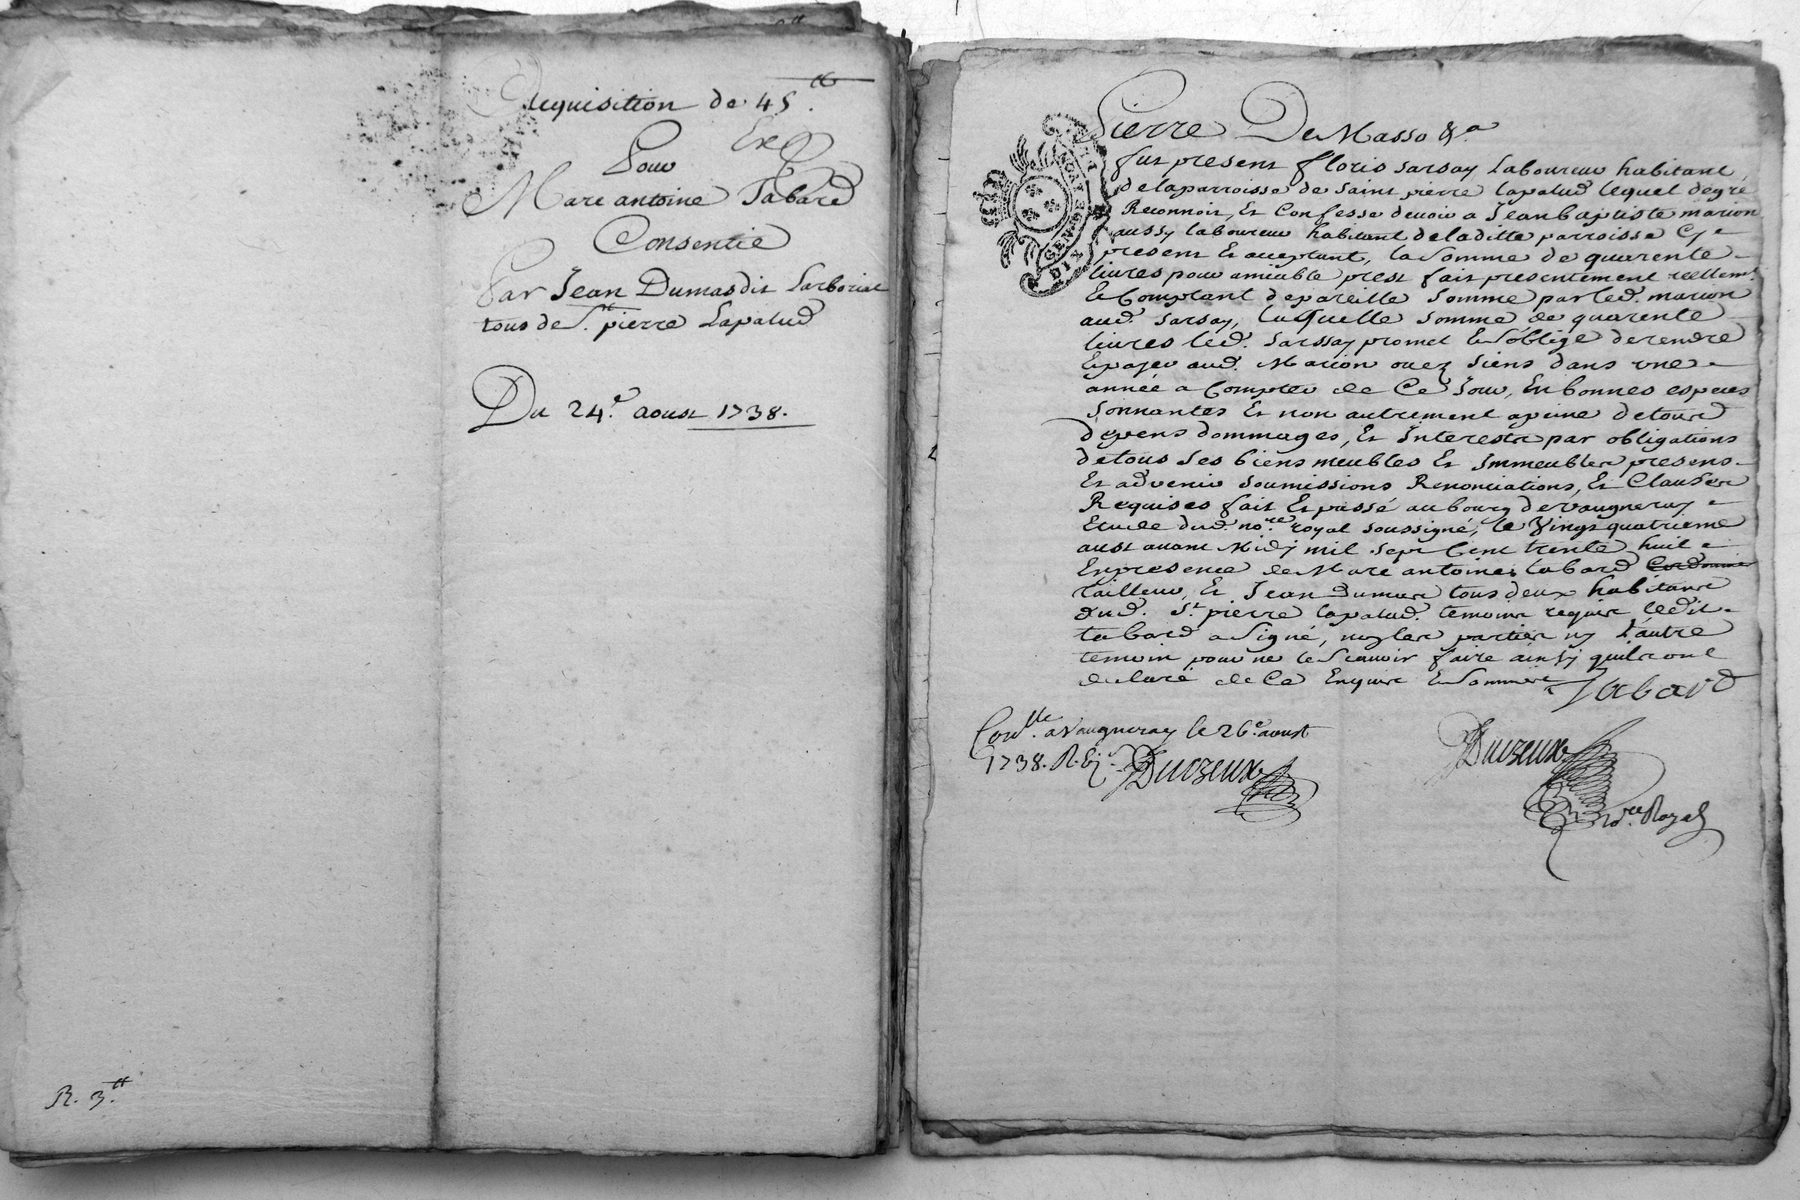 Acquisition de 45.tt
Ex
Pour
Marc antoine Tabard
Consentie
Par Jean Dumas dit
tous de St. pierre Lapalud
Du 24.e aoust 1738.
R. 3.tt
Pierre DeMasso &a
fut present floris sarsay Laboureur habitant
delaparroisse de saint pierre lapalud lequel degré
Reconnoit, Et Confesse devoir a Jean baptiste marion
aussy laboureur habitant deladitte parroisse Cy
present Et acceptant, la somme de quarente
livres pour amiable prest fait presentement reellemt.
Et Comptant depareille Somme par led. marion
aud. sarsay, laquelle somme de quarente
livres led. sarssay promet Et soblige derendre
Epayer aud. Marion ou ez siens dans une
année a Compter de Ce Jour, En bonnes especes
Sonnantes Et non autrement apeine detous
depens dommages, Et Interests par obligations
detous ses biens meubles Et Immeubles presens
Et advenir soumissions Renonciations, Et Clauses
Requises fait Et passé au bourg devaugneray
Etude dud. no.re royal soussigné, le Vingt quatrieme
aust avant Midy mil sept Cent trente huit
Enpresence de Marc antoine tabard Cordonnier
tailleur, Et Jean dumas tous deux habitans
dud. St. pierre lapalud temoins requis ledit
tabard a Signé, non les parties ny l'autre
temoin pour ne le scauoir faire ainsy quils ont
declaré de Ce Enquis Et sommes Tabard
Con.lle a Vaugneray le 26.e aoust
1738. R. 6s. Duvzeux
Duvzeux
No.re Royal
GEN DE LYON
DIX